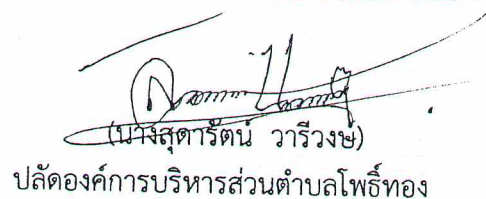 (นางสุดารัตน์ วารีวงษ์)
ปลัดองค์การบริหารส่วนตำบลโพธิ์ทอง